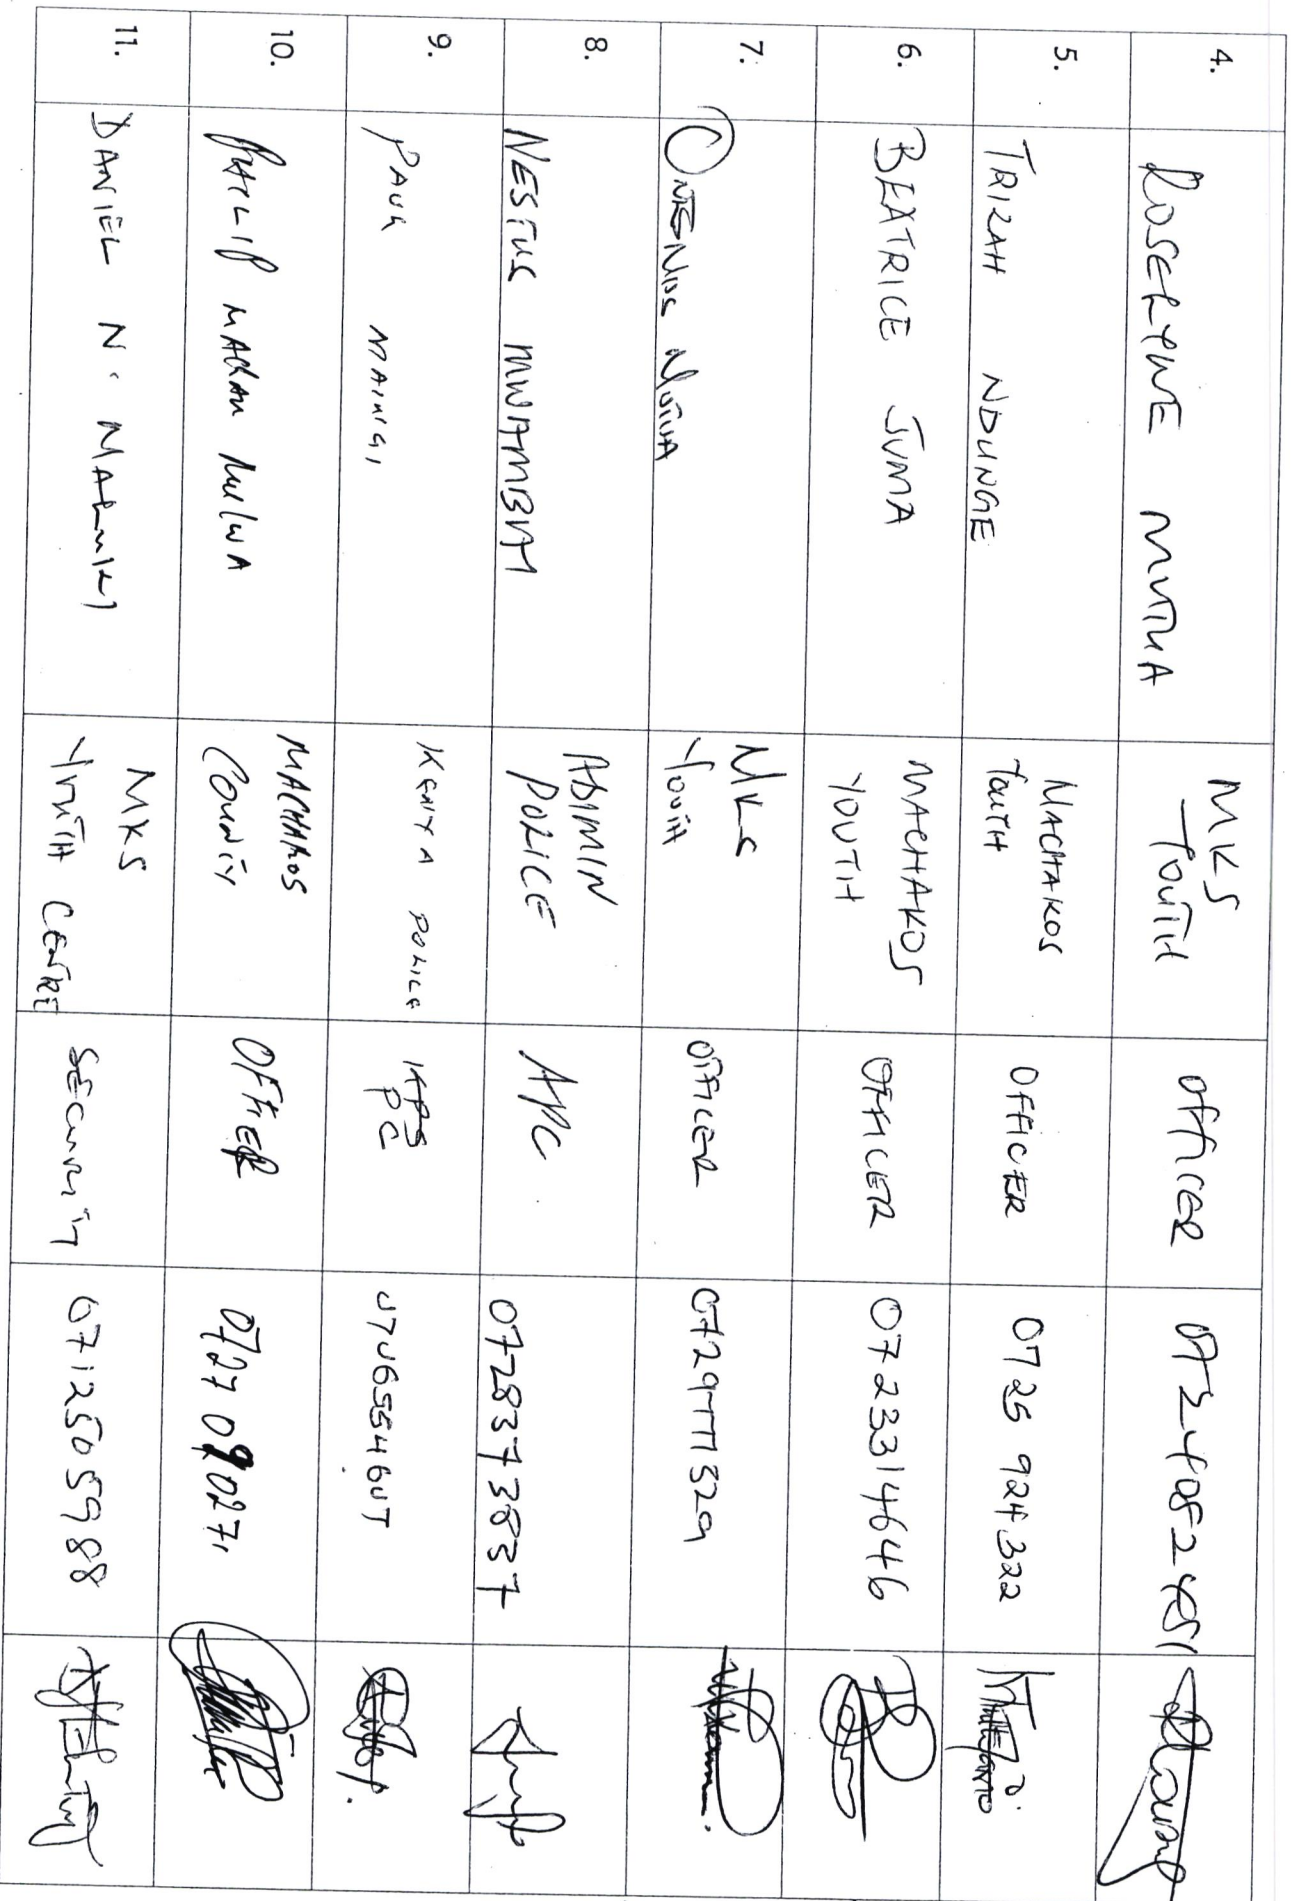 4. ROSELYNE MUTUA MKS YOUTH OFFICER 0724052451
5. TRIZAH NDUNGE MACHAKOS YOUTH OFFICER 0725 924 322
6. BEATRICE JUMA MACHAKOS YOUTH OFFICER 0723314646
7. MUTUA MKS YOUTH OFFICER
8. NESTUS MWAMBAH ADIMIN POLICE APC 0728373837
9. PAUL MAINGI KENYA POLICE KPS PC
10. PHILIP MACHAU MULWA MACHAKOS COUNTY OFFICER 0727 090271
11. DANIEL N. MKS YOUTH CENTRE SECURITY 0712505988